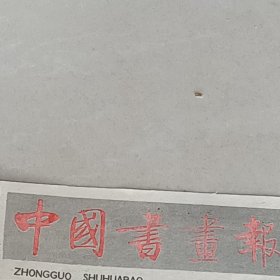 中國書畫報
ZHONGGUO SHUHUABAO